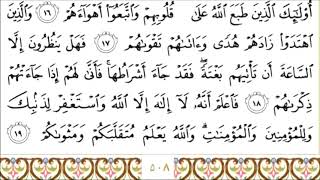 أُو۟لَٰٓئِكَ ٱلَّذِينَ طَبَعَ ٱللَّهُ عَلَىٰ قُلُوبِهِمْ وَٱتَّبَعُوٓا۟ أَهْوَآءَهُمْ ١٦ وَٱلَّذِينَ
ٱهْتَدَوْا۟ زَادَهُمْ هُدًى وَءَاتَىٰهُمْ تَقْوَىٰهُمْ ١٧ فَهَلْ يَنظُرُونَ إِلَّا
ٱلسَّاعَةَ أَن تَأْتِيَهُم بَغْتَةً ۖ فَقَدْ جَآءَ أَشْرَاطُهَا ۚ فَأَنَّىٰ لَهُمْ إِذَا جَآءَتْهُمْ
ذِكْرَىٰهُمْ ١٨ فَٱعْلَمْ أَنَّهُۥ لَآ إِلَٰهَ إِلَّا ٱللَّهُ وَٱسْتَغْفِرْ لِذَنۢبِكَ
وَلِلْمُؤْمِنِينَ وَٱلْمُؤْمِنَٰتِ ۗ وَٱللَّهُ يَعْلَمُ مُتَقَلَّبَكُمْ وَمَثْوَىٰكُمْ ١٩
٥٠٨